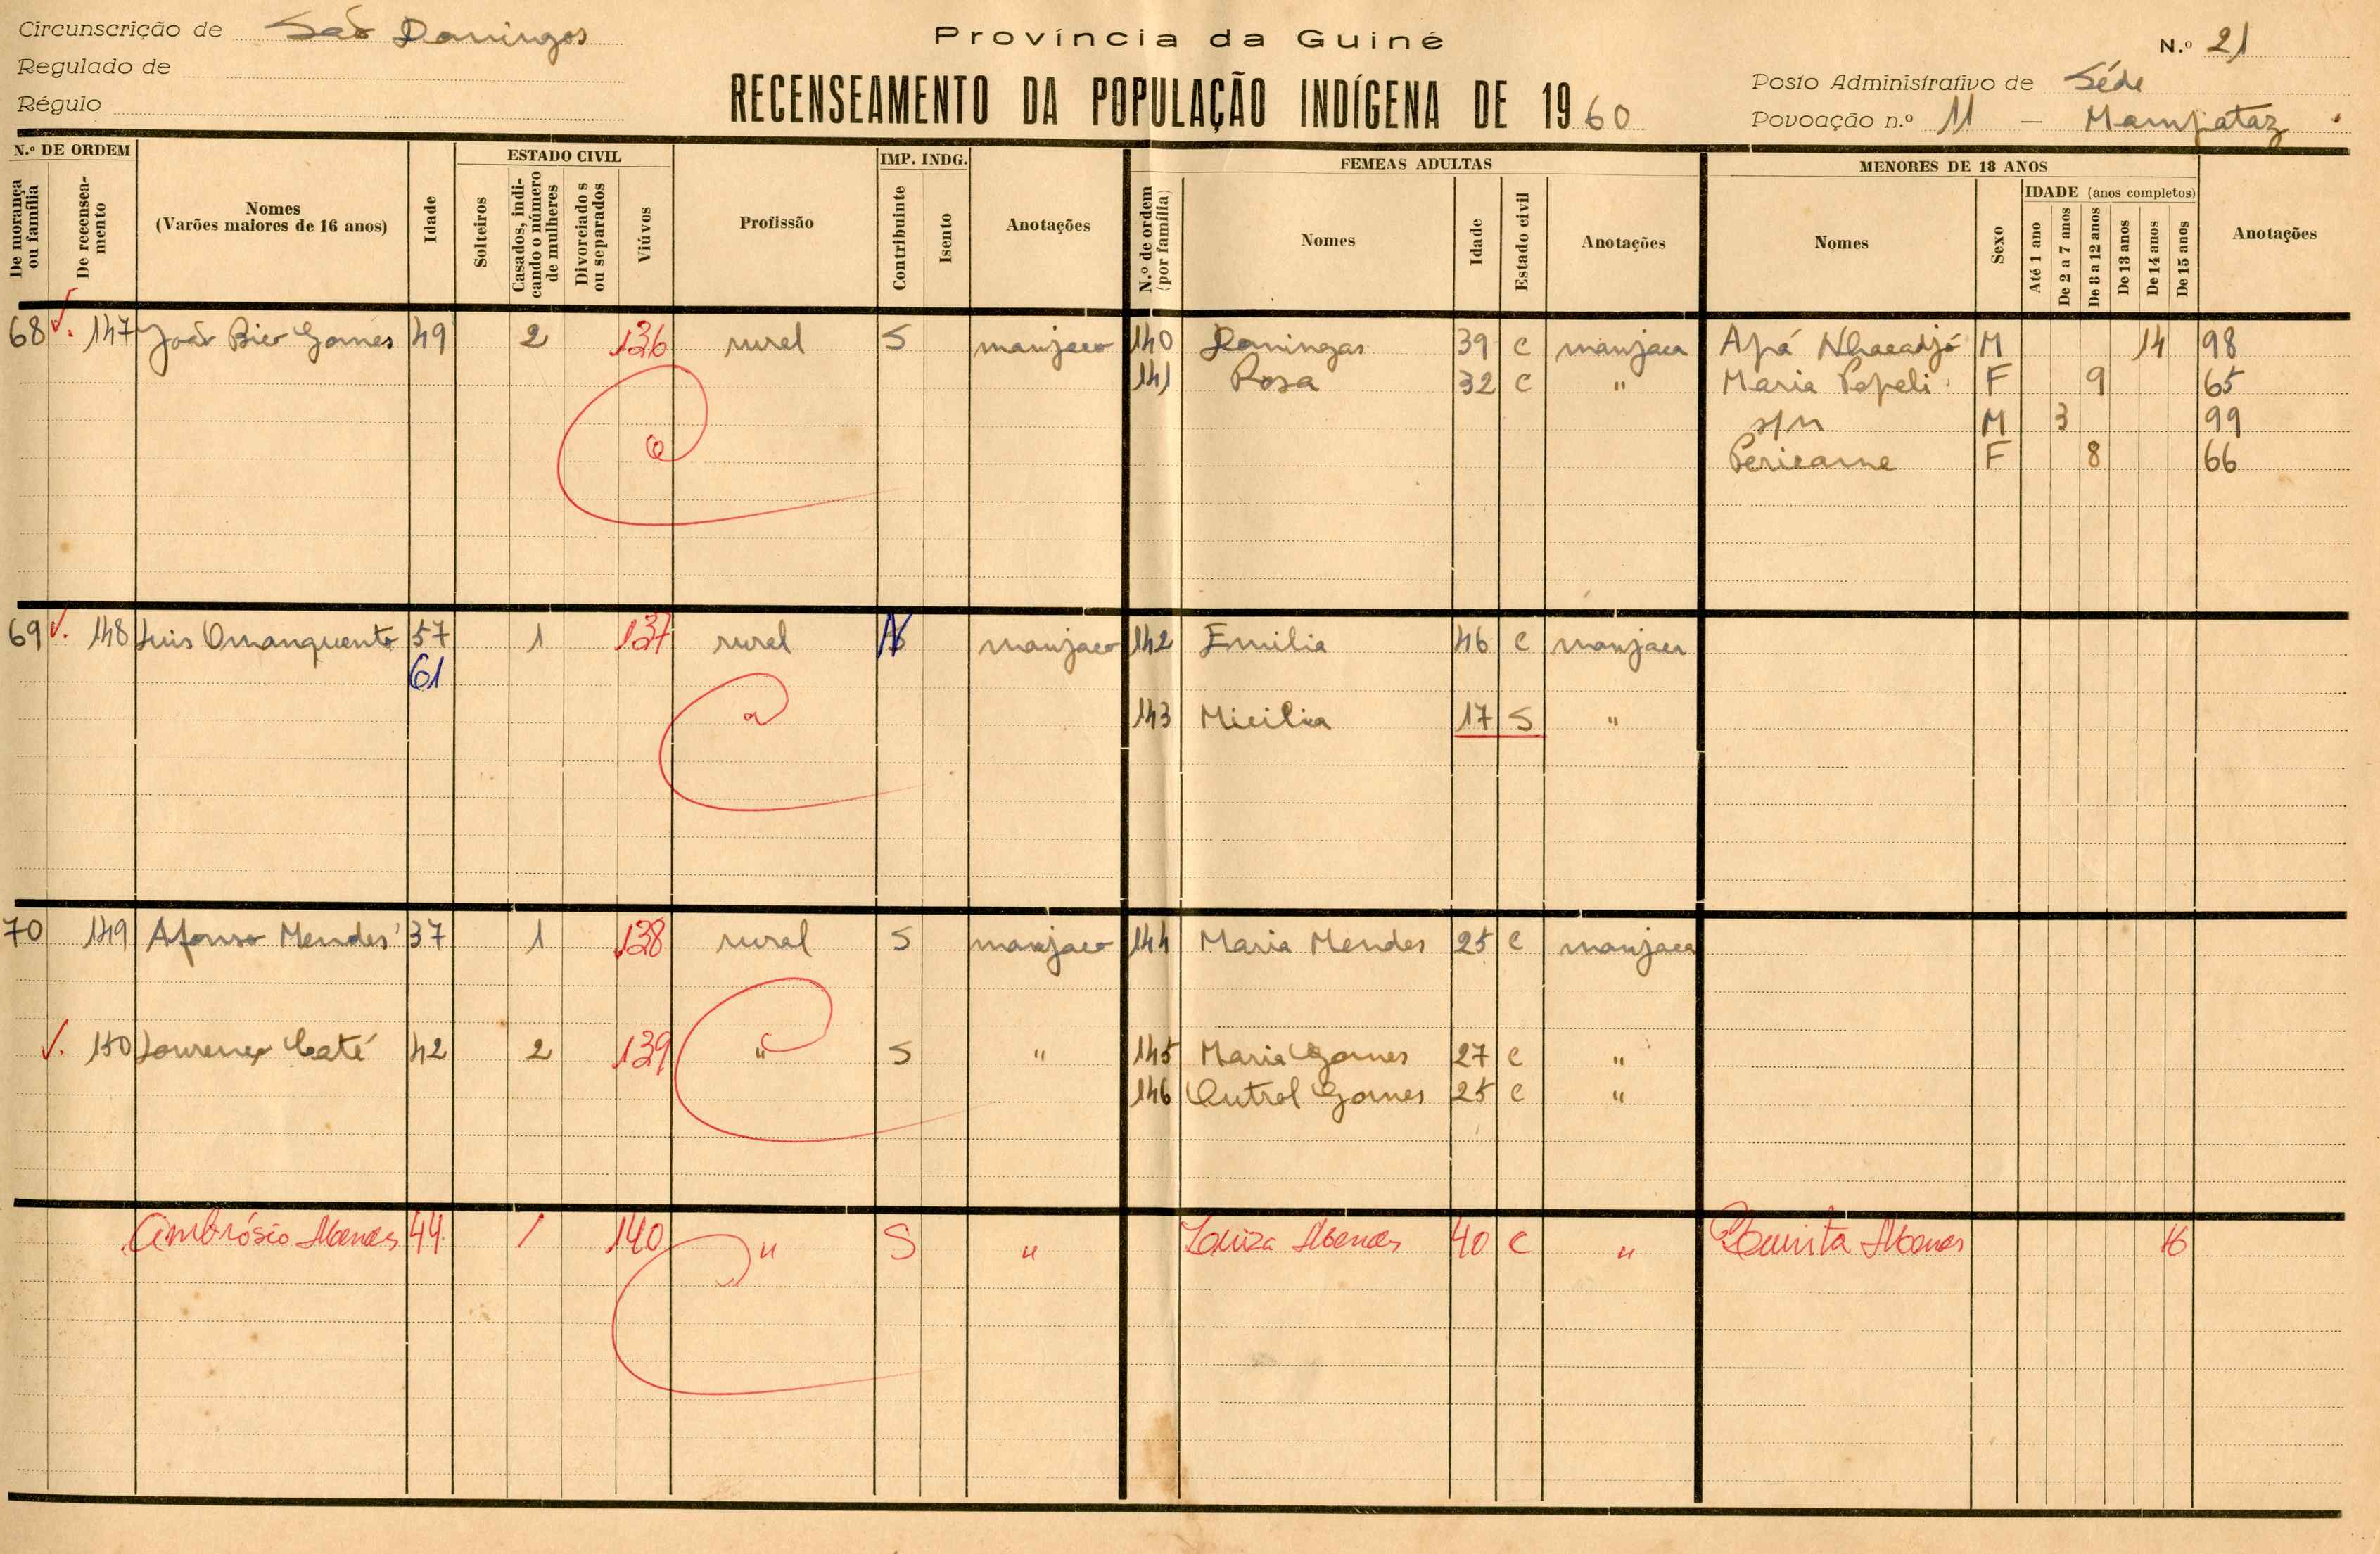 Circunscrição de São Domingos
Regulado de
Régulo
Província da Guiné
RECENSEAMENTO DA POPULAÇÃO INDÍGENA DE 1960
N.º 21
Posto Administrativo de Séde
Povoação n.º 11 — Mampataz
N.º DE ORDEM
De morança ou família
De recenseamento
Nomes
(Varões maiores de 16 anos)
Idade
ESTADO CIVIL
Solteiros
Casados, indicando o número de mulheres
Divorciados ou separados
Viúvos
Profissão
IMP. INDG.
Contribuinte
Isento
Anotações
FEMEAS ADULTAS
N.º de ordem (por família)
Nomes
Idade
Estado civil
Anotações
MENORES DE 18 ANOS
Nomes
Sexo
IDADE (anos completos)
Até 1 ano
De 2 a 7 anos
De 8 a 12 anos
De 13 anos
De 14 anos
De 15 anos
Anotações
68 147 João Bico Gomes 49 2 136 rural S manjaco 140 Domingas 39 c manjaca Apá Nhacadjó M 14 98
141 Rosa 32 c " Maria Pepeli F 9 65
s/n M 3 99
Pericarne F 8 66
69 148 Luis Omanquento 57 1 137 rural manjaco 142 Emilia 46 c manjaca
61
143 Micilia 17 S "
70 149 Afonso Mendes 37 1 138 rural S manjaco 144 Maria Mendes 25 c manjaca
150 Lourenço Caté 42 2 139 " S " 145 Maria Gomes 27 c "
146 Gomes 25 c "
Ambrósio Mendes 44 1 140 " S " Luiza Mendes 40 c " Mendes 16